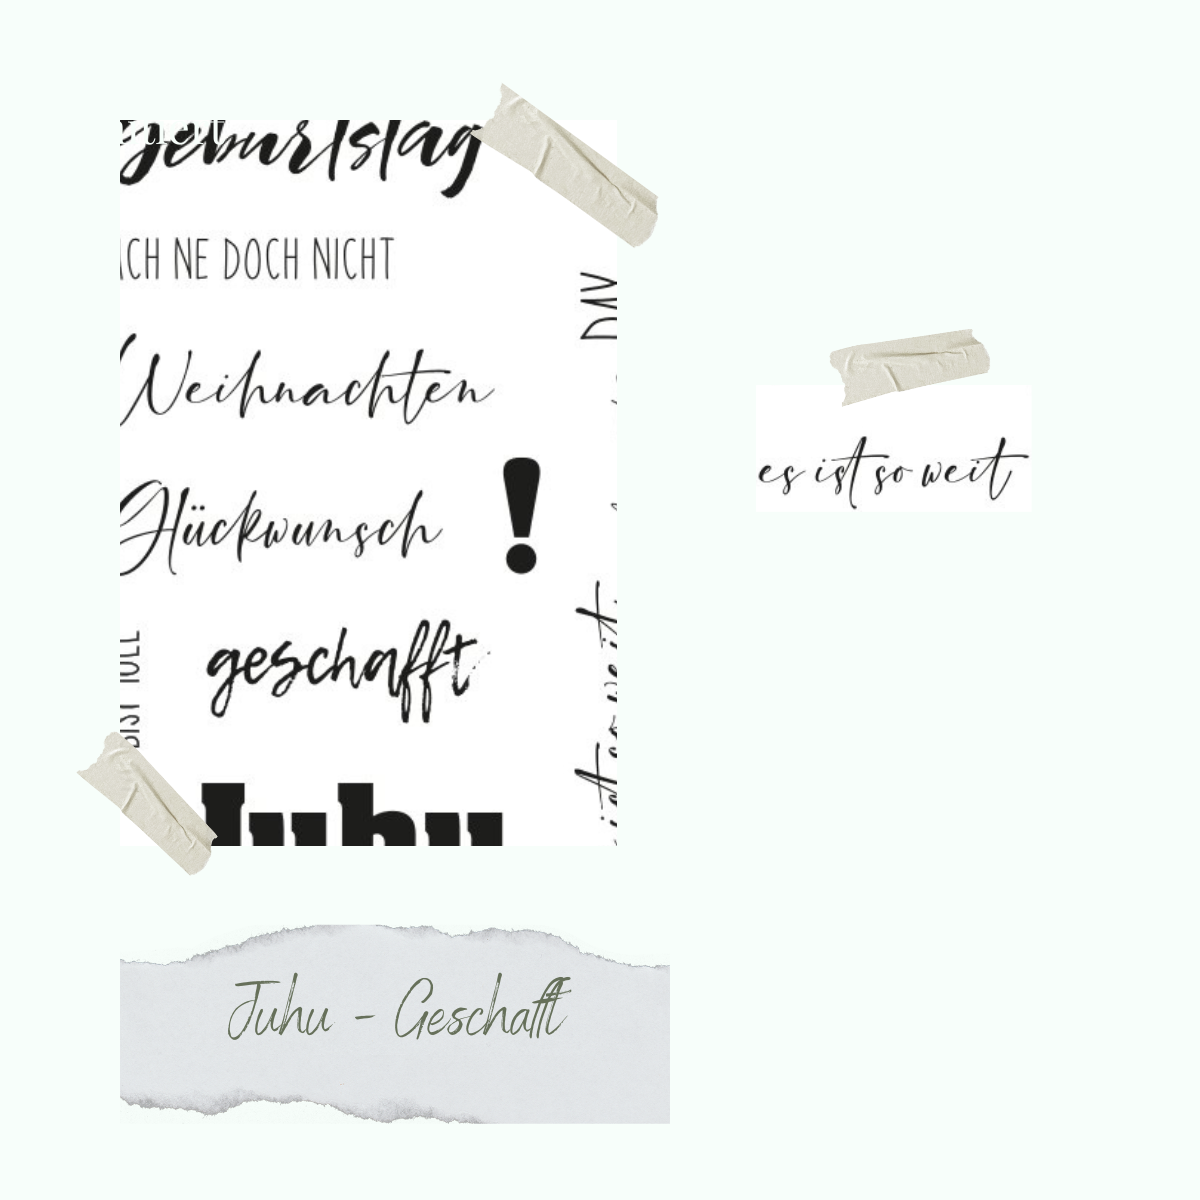 Geburtstag
ACH NE DOCH NICHT
Weihnachten
Glückwunsch
!
geschafft
BIST TOLL
Juhu
ist so weit
es ist so weit
Juhu - Geschafft